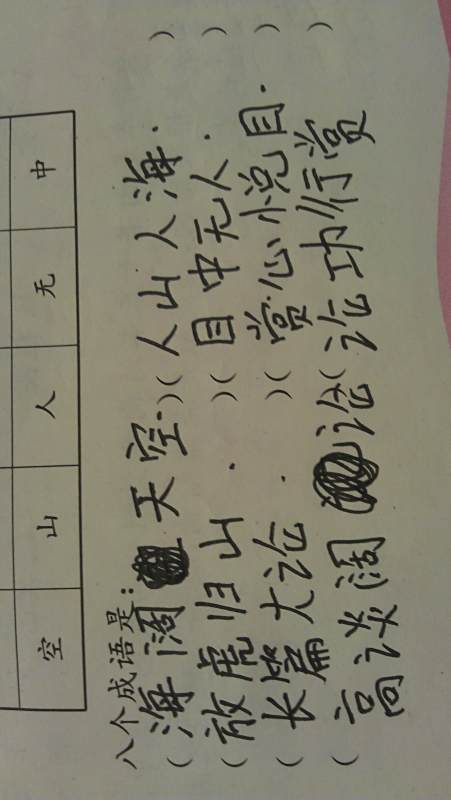 空 山 人 无 中
八个成语是:
(海阔天空.)(人山人海.)
(放虎归山.)(目中无人.)
(长篇大论.)(赏心悦目.)
(高谈阔论)(论功行赏)